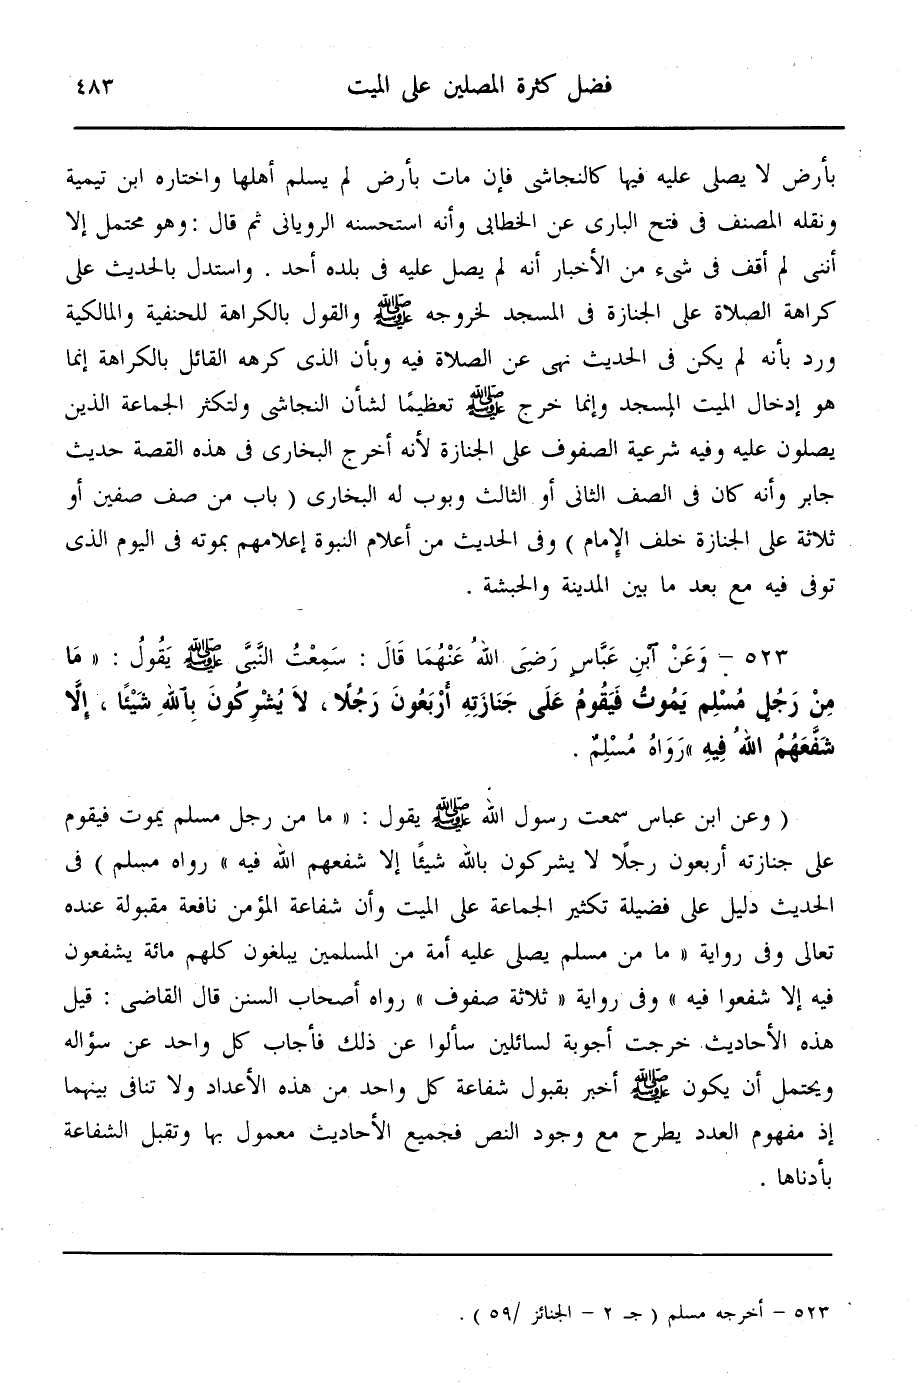 فضل كثرة المصلين على الميت ٤٨٣
بأرض لا يصلى عليه فيها كالنجاشى فإن مات بأرض لم يسلم أهلها واختاره ابن تيمية
ونقله المصنف فى فتح البارى عن الخطابى وأنه استحسنه الرويانى ثم قال : وهو محتمل إلا
أننى لم أقف فى شىء من الأخبار أنه لم يصل عليه فى بلده أحد . واستدل بالحديث على
كراهة الصلاة على الجنازة فى المسجد لخروجه ﷺ والقول بالكراهة للحنفية والمالكية
ورد بأنه لم يكن فى الحديث نهى عن الصلاة فيه وبأن الذى كرهه القائل بالكراهة إنما
هو إدخال الميت المسجد وإنما خرج ﷺ تعظيمًا لشأن النجاشى ولتكثر الجماعة الذين
يصلون عليه وفيه شرعية الصفوف على الجنازة لأنه أخرج البخارى فى هذه القصة حديث
جابر وأنه كان فى الصف الثانى أو الثالث وبوب له البخارى ( باب من صف صفين أو
ثلاثة على الجنازة خلف الإمام ) وفى الحديث من أعلام النبوة إعلامهم بموته فى اليوم الذى
توفى فيه مع بعد ما بين المدينة والحبشة .
٥٢٣ – وَعَنْ ٱبْنِ عَبَّاسٍ رَضِىَ اللهُ عَنْهُمَا قَالَ : سَمِعْتُ النَّبِىَّ ﷺ يَقُولُ : « مَا
مِنْ رَجُلٍ مُسْلِمٍ يَمُوتُ فَيَقُومُ عَلَى جَنَازَتِهِ أَرْبَعُونَ رَجُلًا ، لاَ يُشْرِكُونَ بِٱللهِ شَيْئًا ، إِلَّا
شَفَّعَهُمُ اللهُ فِيهِ » رَوَاهُ مُسْلِمٌ .
( وعن ابن عباس سمعت رسول الله ﷺ يقول : « ما من رجل مسلم يموت فيقوم
على جنازته أربعون رجلًا لا يشركون بالله شيئًا إلا شفعهم الله فيه » رواه مسلم ) فى
الحديث دليل على فضيلة تكثير الجماعة على الميت وأن شفاعة المؤمن نافعة مقبولة عنده
تعالى وفى رواية « ما من مسلم يصلى عليه أمة من المسلمين يبلغون كلهم مائة يشفعون
فيه إلا شفعوا فيه » وفى رواية « ثلاثة صفوف » رواه أصحاب السنن قال القاضى : قيل
هذه الأحاديث خرجت أجوبة لسائلين سألوا عن ذلك فأجاب كل واحد عن سؤاله
ويحتمل أن يكون ﷺ أخبر بقبول شفاعة كل واحد من هذه الأعداد ولا تنافى بينهما
إذ مفهوم العدد يطرح مع وجود النص فجميع الأحاديث معمول بها وتقبل الشفاعة
بأدناها .
٥٢٣ – أخرجه مسلم ( جـ ٢ – الجنائز /٥٩ ) .